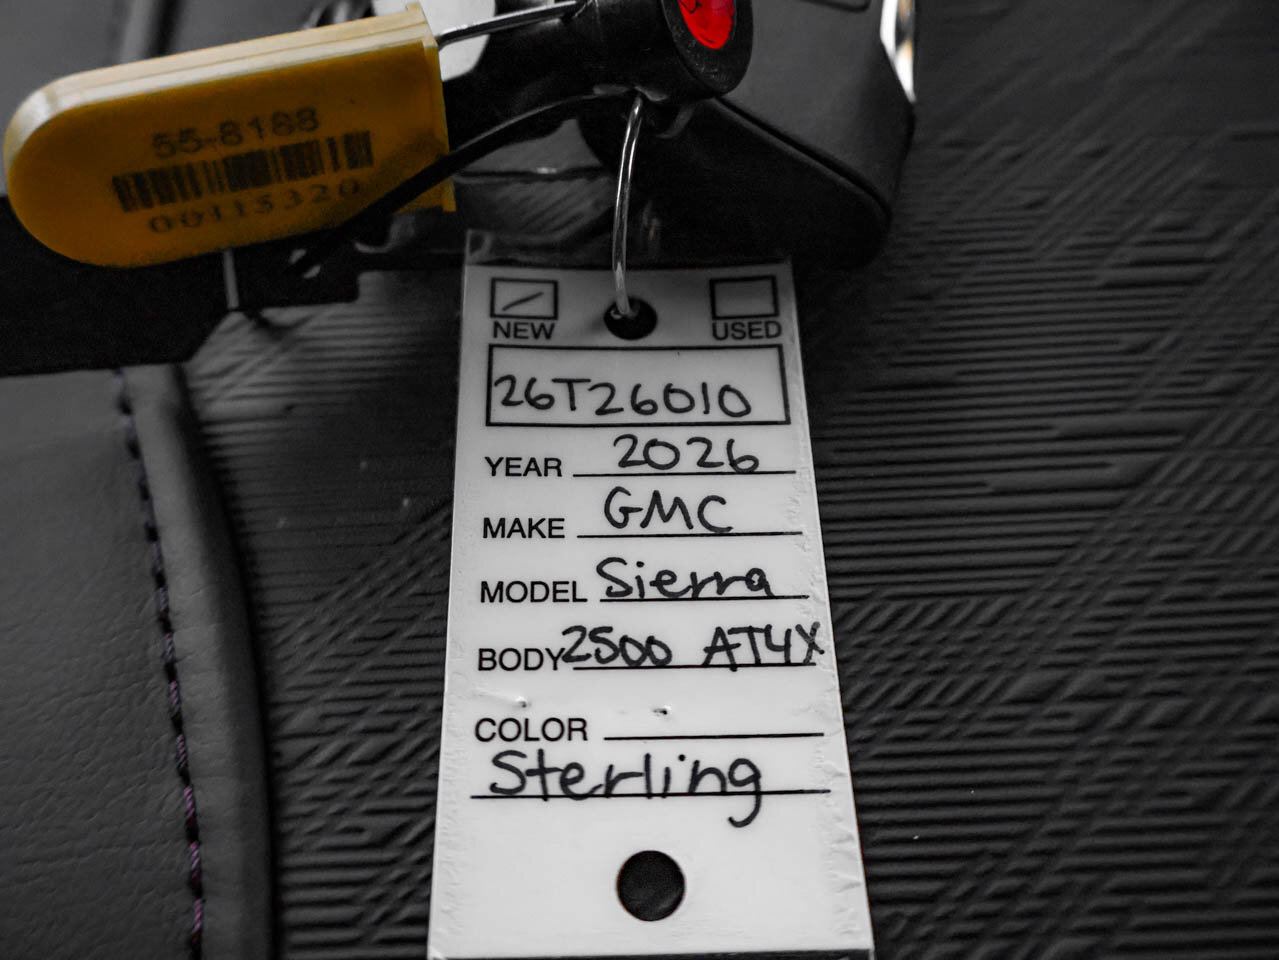 55-8188
00115320
NEW USED
26T26010
YEAR 2026
MAKE GMC
MODEL Sierra
BODY 2500 AT4X
COLOR
Sterling